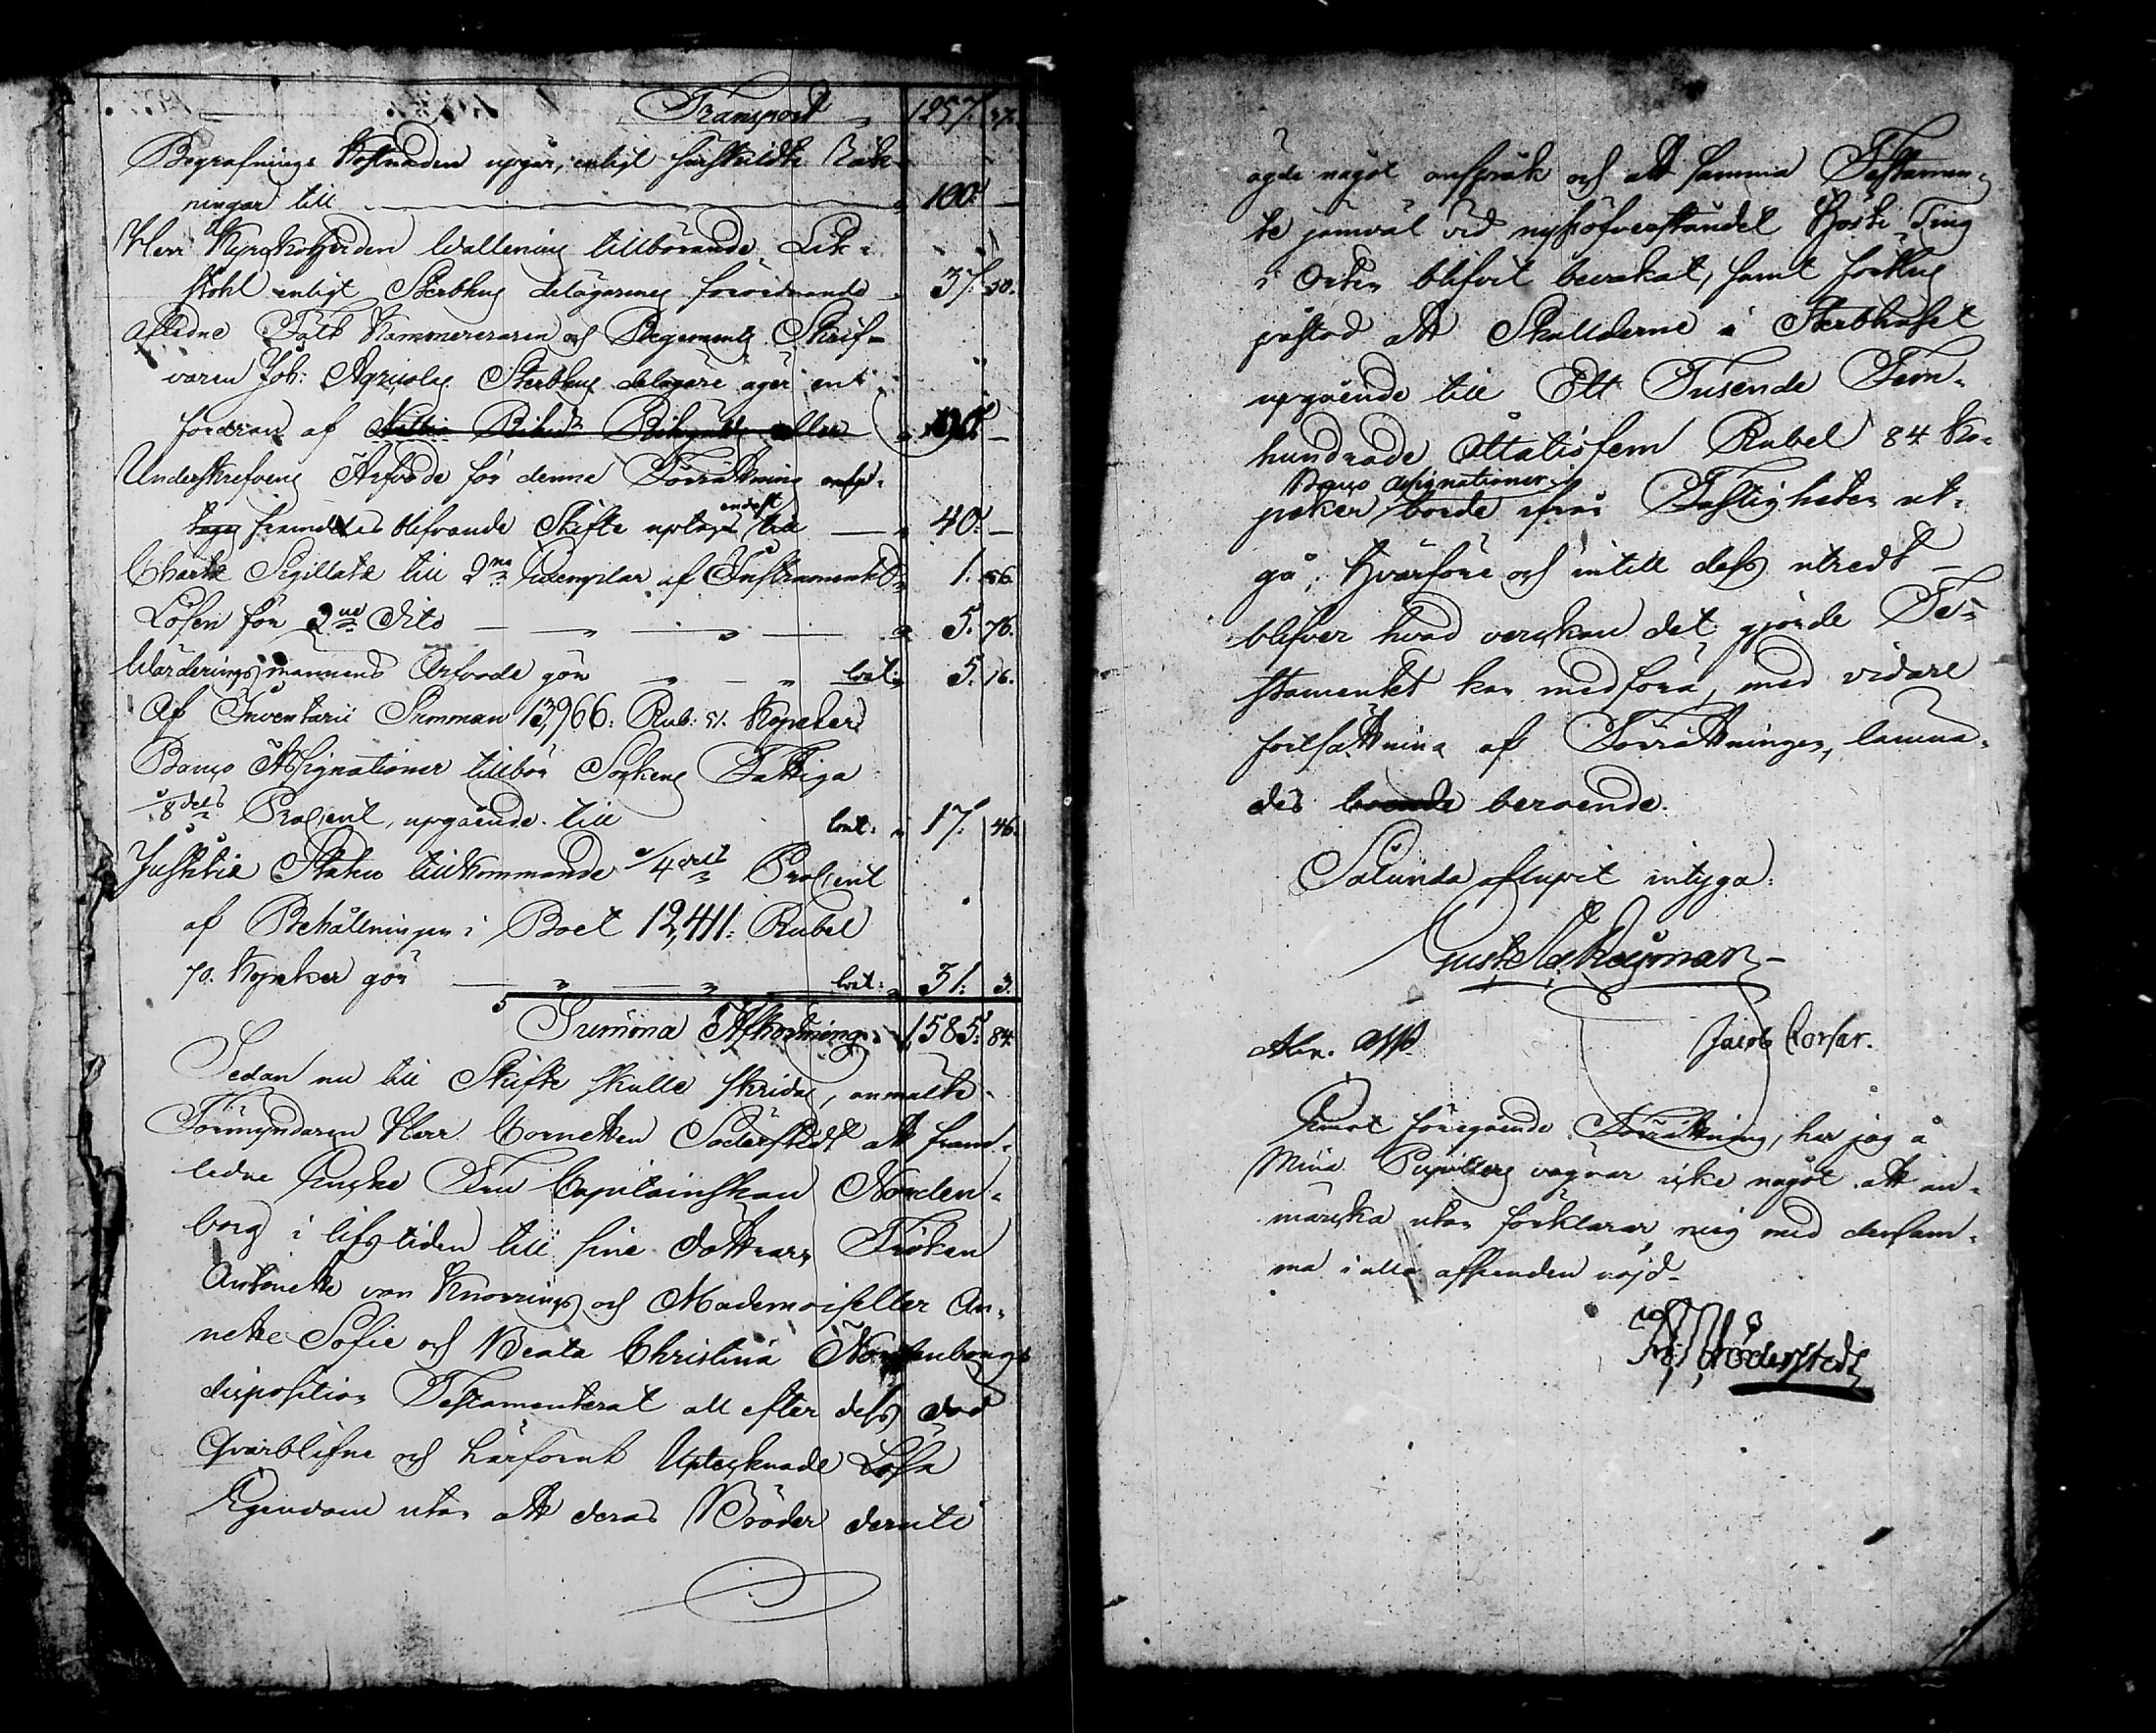 Transport " 1257. 37.
Begrafnings Kostnaden upgår, enligt särskildte Räk-
ningar till " 190. —
Herr Kyrkoherden Wallenius tillhörande Lik-
stohl enligt Sterbhus delägarenes förordnande " 37. 50.
Afledne Fält Kammereraren och Regements Skrif-
varen Joh: Agricolas Sterbhus delägare äger en
fordran af
Underskrefvens Arfvode för denne Förrättning
framdeles blifvande Skifte uptages endast till — " 40. —
Charte Sigillate till 2ne Exemplar af Instrumentet " 1. 56.
Lösen för 2ne dito — " — " — " 5. 76.
Wärderingsmännens Arfvode gör " — " 5. 16.
Af Inventarii Summan 13,966: Rub: 51. Kopeker
Banco Assignationer tillhör Sockens Fattiga
1/8dels Procent, upgående till " 17. 46.
Justitiæ Staten tillkommande 1/4dels Procent
af Behållningen i Boet 12,411: Rubel
70. Kopeker gör — " — " " 31. 3.
Summa Afkortning " 1,585. 84
Sedan nu till Skifte skulle skridas, anmälte
Förmyndaren Herr Cornetten Söderstedt att fram-
ledne Enke Fru Capitainskan Norden-
borg i lifstiden till sine döttrars Fröken
Antonette von Knorrings och Mademoiseller An-
nette Sofie och Beata Christina Nordenborgs
disposition Testamenterat all efter dess död
Qvarblifne och härförut Uptecknade Lösa
Egendom utan att deras Bröder deruti
ägde något anspråk och att samma Testamen-
te jämväl vid nystöfverståndet Höste Ting
i Orten blifvit bevakat, samt
påstod att Skullderne i Sterbhuset
upgående till Ett Tusende Fem-
hundrade Åttatiofem Rubel 84 Ko-
Banco Assignationer
peker borde ifrån Fastigheten ut-
gå; Hvarföre och intill dess utredt
blifver hvad verkan det gjorde Te-
stamentet kan medföra, med vidare
fortsättning af Förrättningen, lämna-
des beroende.
Sålunda aflupit intyga:
Jacob Corsar.
Emot föregående Förrättning, har jag å
Mina Pupillers vägnar icke något att an-
märka utan förklarar mig med densam-
ma i alla afseenden nöjd
Söderstedt